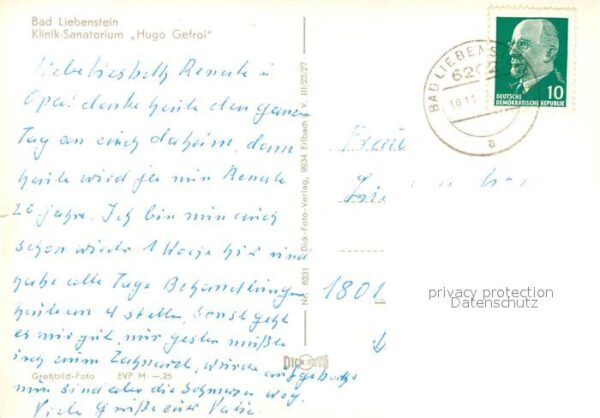 Bad Liebenstein
Klinik-Sanatorium „Hugo Gefroi"
Liebe Liesbeth Renate u
Opa! denke heute den ganzen
Tag an euch daheim, denn
heute wird ja nun Renate
20 Jahre. Ich bin nun auch
schon wieder 1 Woche hier und
habe alle Tage Behandlungen
heute an 4 Stellen, sonst geht
es mir gut, nur gestern mußte
ich zum Zahnarzt, wurde aufgebohrt
nun sind aber die Schmerzen weg.
Viele Grüße
Großbild-Foto EVP M —.25
Nr. 6331 Dick-Foto-Verlag, 9534 Erlbach i. V. III/23/27
DICK FOTO
BAD LIEBENS
620
19.11
a
10
DEUTSCHE
DEMOKRATISCHE REPUBLIK
Frau
1801
privacy protection
Datenschutz